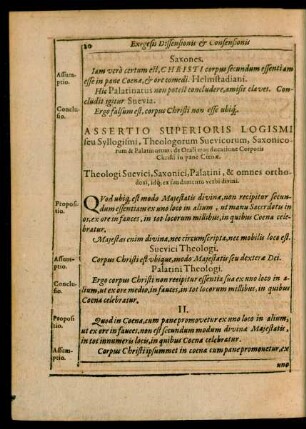 80 Exegesis Dissensionis & Consensionis
Saxones.
Assumptio. Iam verò certum est, CHRISTI corpus secundum essentiam
esse in pane Coenæ, & ore comedi. Helmstadiani.
His Palatinatus non potest concludere, amisit claves. Con-
Conclusio. cludit igitur Suevia.
Ergo falsum est, corpus Christi non esse ubiq;.
ASSERTIO SUPERIORIS LOGISMI
seu Syllogismi, Theologorum Suevicorum, Saxonico-
rum & Palatinorum: de Orali Corporis
Christi in pane Coenæ.
Theologi Suevici, Saxonici, Palatini, & omnes ortho-
doxi, idq; ex fundamento verbi divini.
Propositio. QVod ubiq; est modo Majestatis divinæ, uti recipitur secun-
dum essentiam ex uno loco in alium, ut manu Sacerdotis in
os, ex ore in fauces, in tot locorum millibus, in quibus Coena cele-
bratur.
Majestas enim divina, nec circumscripta, nec mobilis loco est.
Suevici Theologi.
Assumptio. Corpus Christi est ubique, modo Majestatis seu dexteræ Dei.
Palatini Theologi.
Conclusio. Ergo corpus Christi non recipitur essentia sua ex uno loco in a-
lium, ut ex ore medio, in fauces, in tot locorum millibus, in quibus
Coena celebratur.
II.
Propositio. Quod in Coena, cum pane promovetur ex uno loco in alium,
ut ex ore in fauces, non est secundum modum divinæ Majestatis,
in tot innumeris locis, in quibus Coena celebratur.
Assumptio. Corpus Christi ipsummet in coena cum pane promovetur, ex
uno